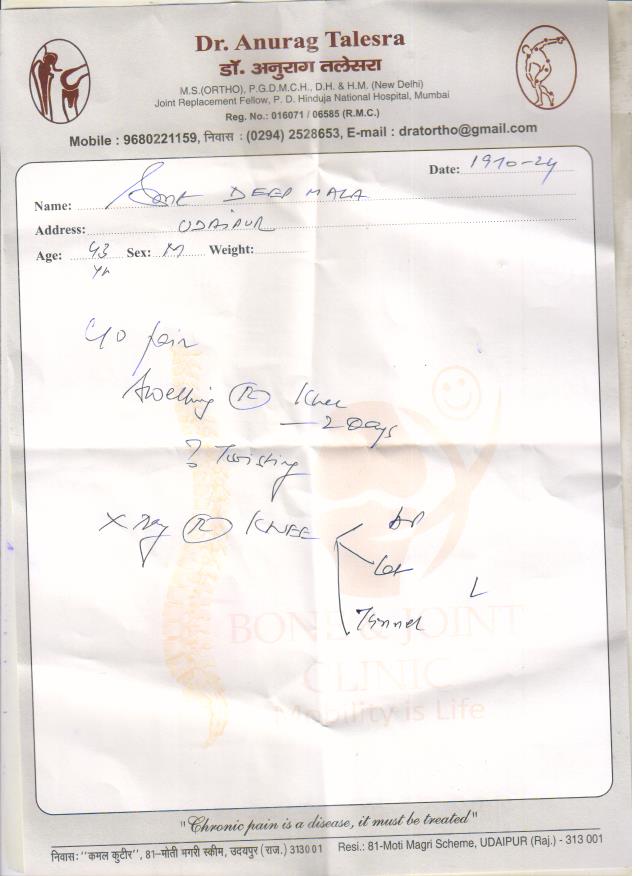 Dr. Anurag Talesra
डॉ. अनुराग तलेसरा
M.S.(ORTHO), P.G.D.M.C.H., D.H. & H.M. (New Delhi)
Joint Replacement Fellow, P. D. Hinduja National Hospital, Mumbai
Reg. No.: 016071 / 06585 (R.M.C.)
Mobile : 9680221159, निवास : (0294) 2528653, E-mail : dratortho@gmail.com
Date: 19-10-24
Name: DEEP MALA
Address: UDAIPUR
Age: 43 Sex: M Weight:
Yr
C/O pain
Swelling (R) Knee
— 2 Days
? Twisting
X Ray (R) KNEE AP
Lat
L
Tunnel
BONE & JOINT
CLINIC
Mobility is Life
"Chronic pain is a disease, it must be treated"
निवास: "कमल कुटीर", 81–मोती मगरी स्कीम, उदयपुर (राज.) 313001 Resi.: 81-Moti Magri Scheme, UDAIPUR (Raj.) - 313 001